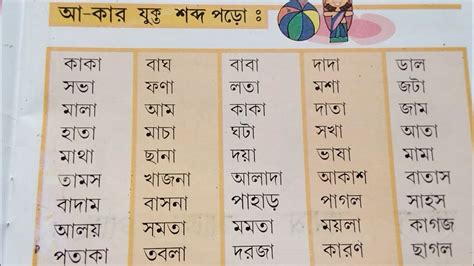 আ-কার যুক্ত শব্দ পড়ো :
কাকা বাঘ বাবা দাদা ডাল
সভা ফণা লতা মশা জটা
মালা আম কাকা দাতা জাম
হাতা মাচা ঘটা সখা আতা
মাথা ছানা দয়া ভাষা মামা
তামস খাজনা আলাদা আকাশ বাতাস
বাদাম বাসনা পাহাড় পাগল সাহস
আলয় সমতা মমতা ময়লা কাগজ
পতাকা তবলা দরজা কারণ ছাগল